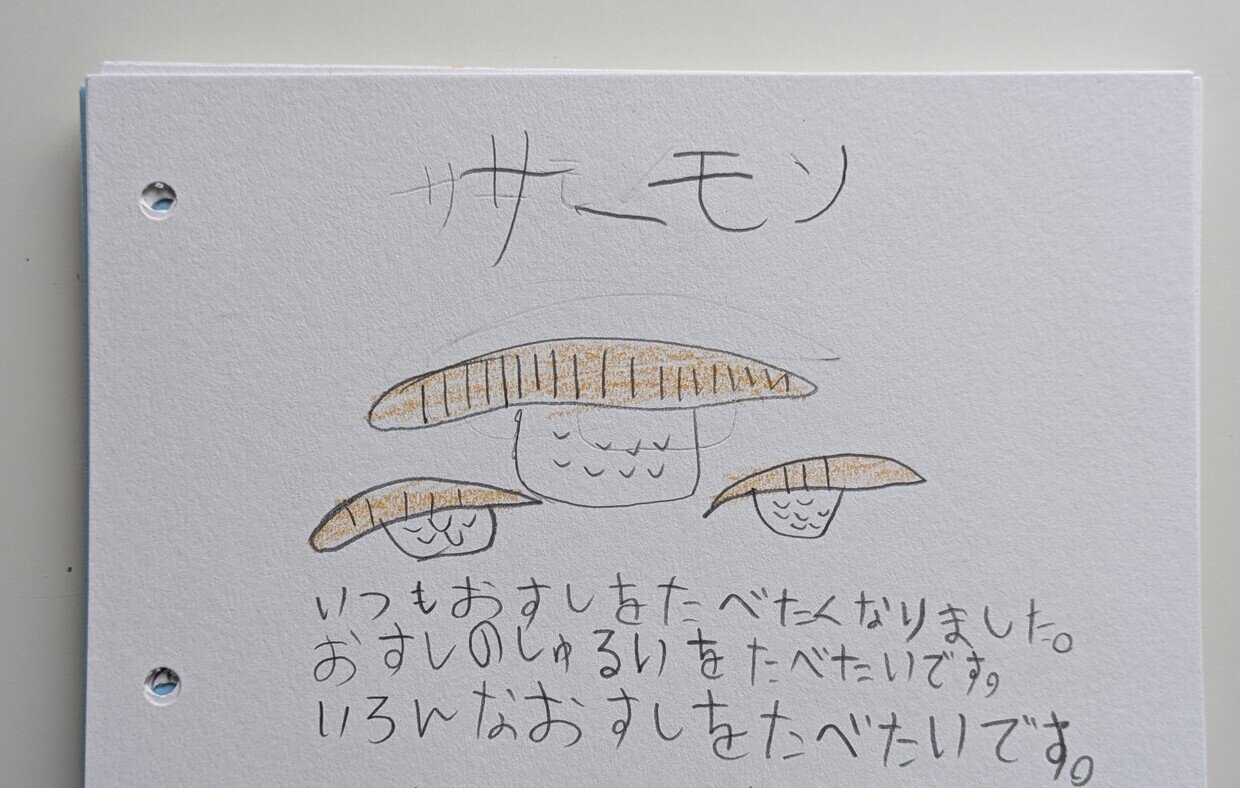 サーモン
いつもおすしをたべたくなりました。
おすしのしゅるいをたべたいです。
いろんなおすしをたべたいです。